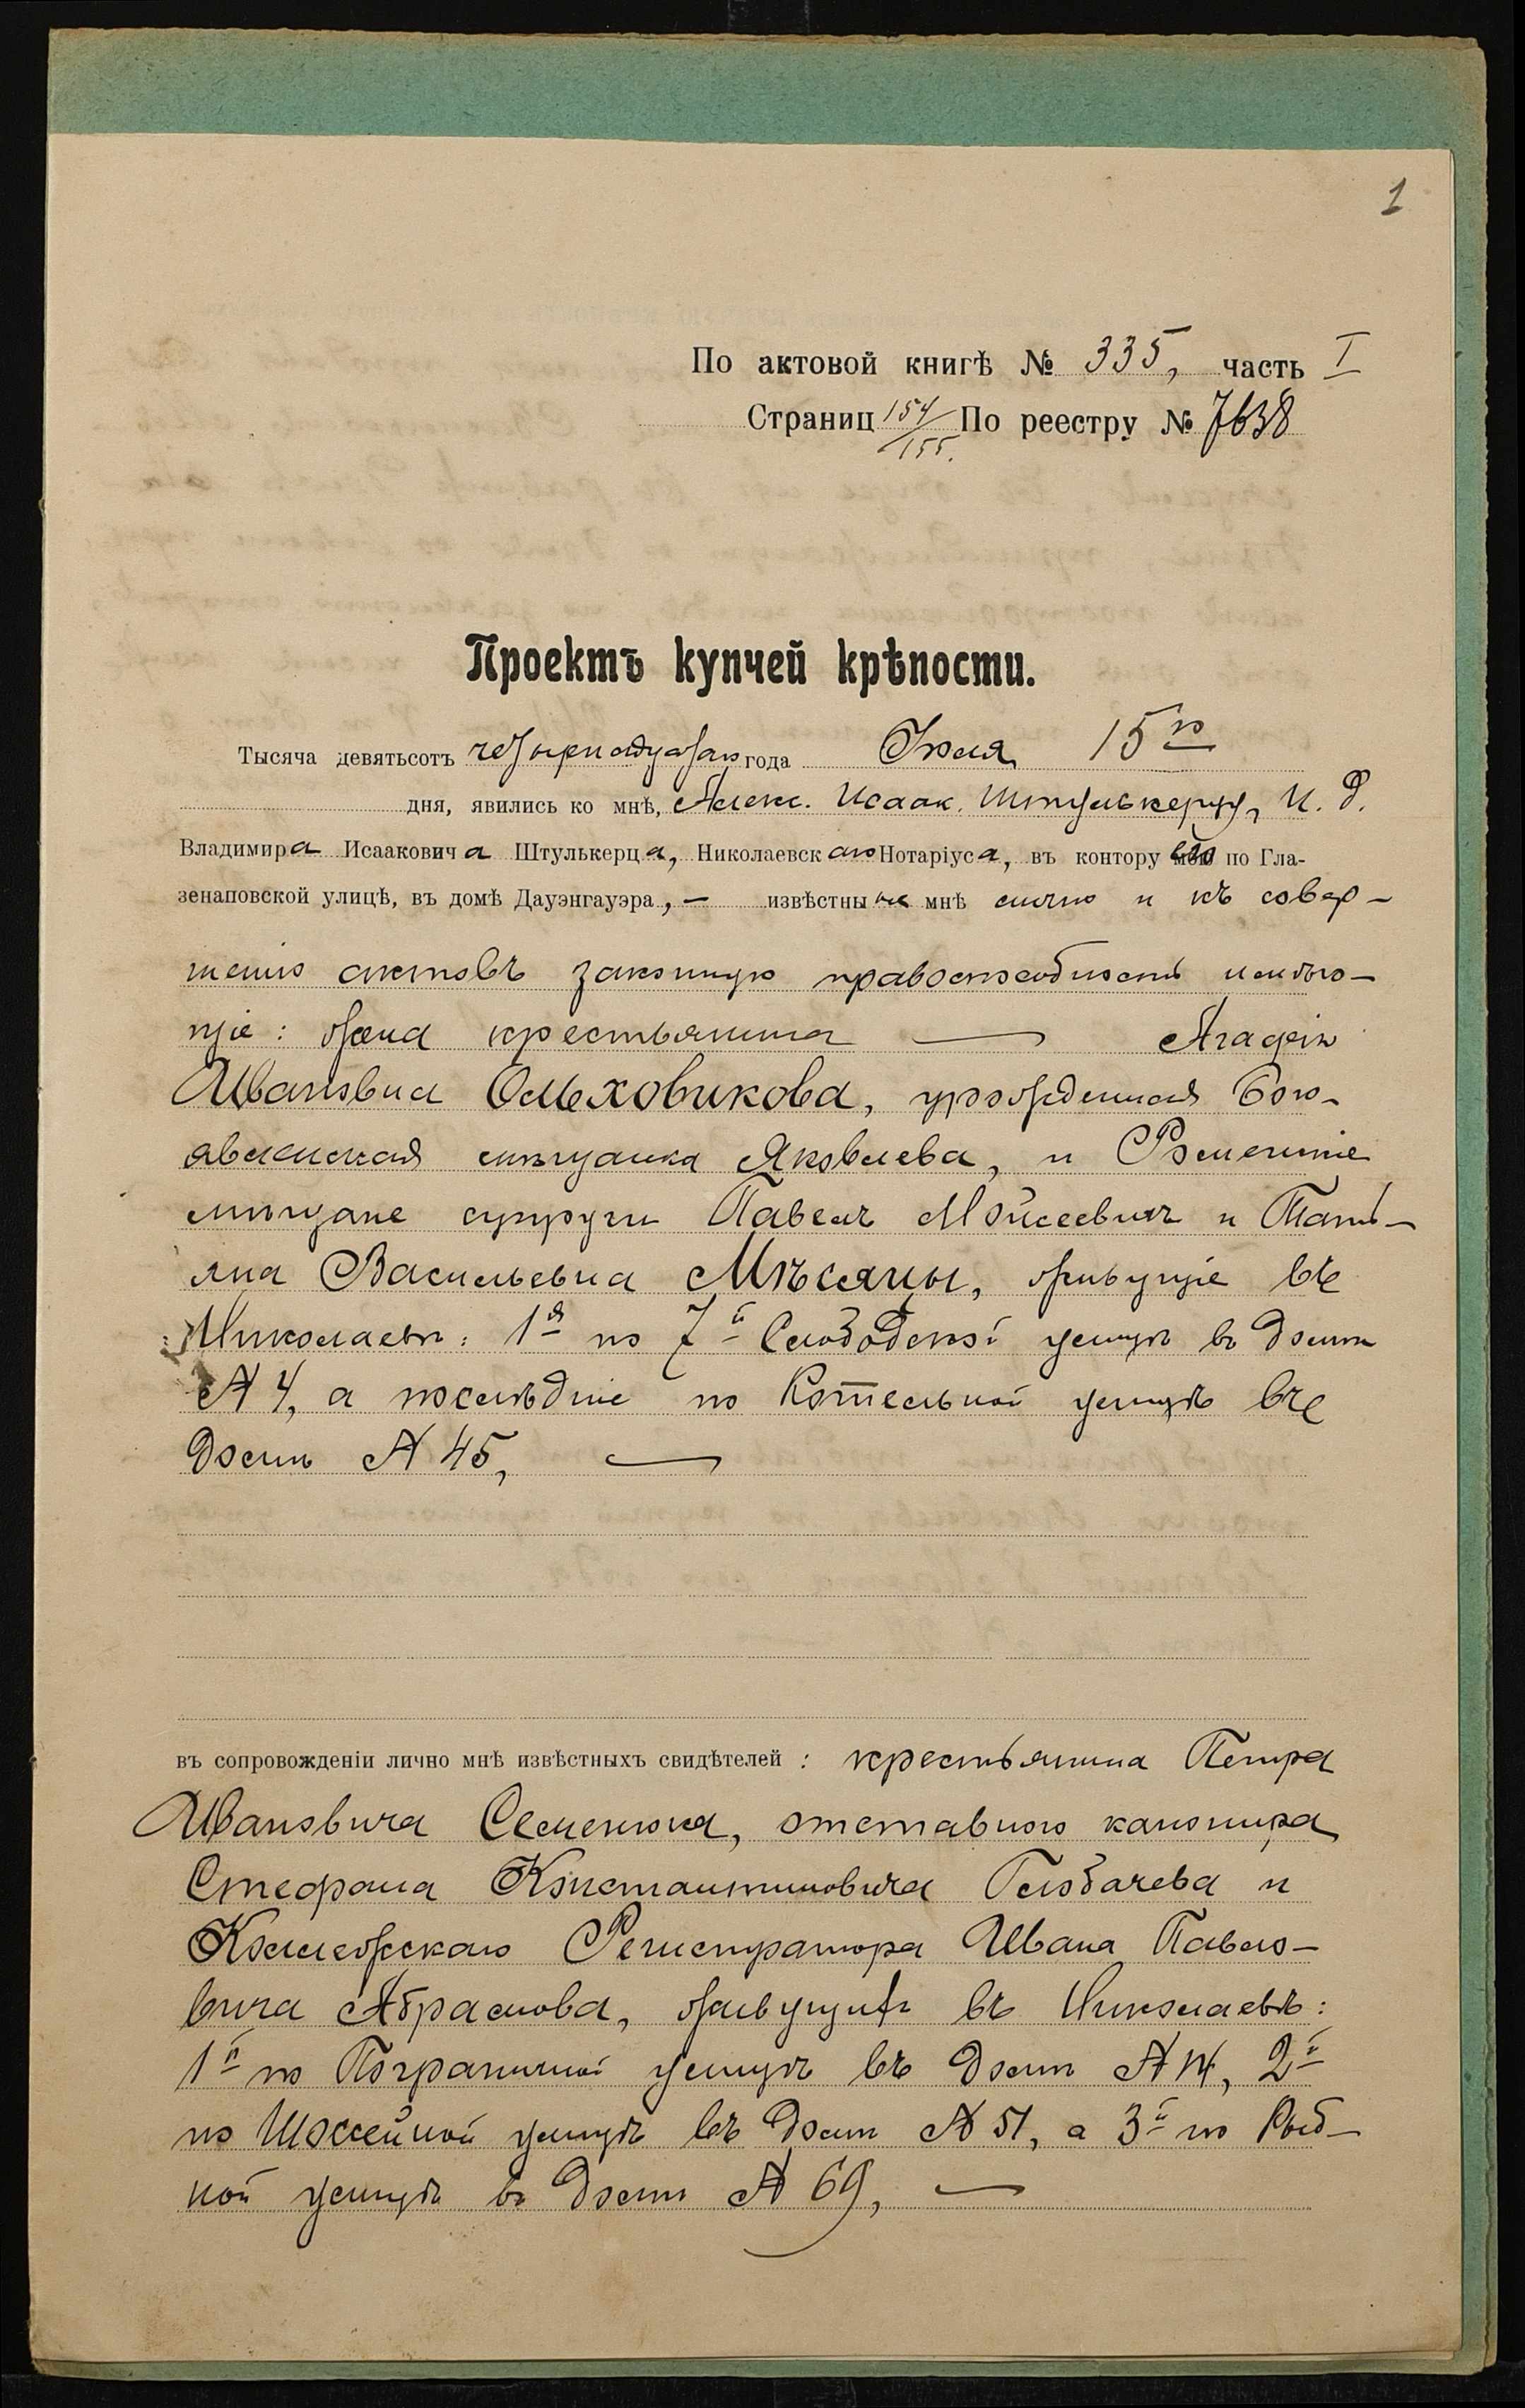 1
По актовой книгѣ № 335, часть I
Страниц 154/155. По реестру № 7638
Проектъ купчей крѣпости.
Тысяча девятьсотъ четырнадцатаго года Іюля 15го
дня, явились ко мнѣ, Алекс. Исаак. Штулькерцу, И. д.
Владимира Исааковича Штулькерца, Николаевскаго Нотаріуса, въ контору его по Гла-
зенаповской улицѣ, въ домѣ Дауэнгауэра, — извѣстные мнѣ лично и къ совер-
шенію актовъ законную правоспособность имѣю-
щіе: жена крестьянина — Агафія
Ивановна Ольховикова, урожденная Бого-
явленская мѣщанка Яковлева, и Роменскіе
мѣщане супруги Павелъ Мойсеевичъ и Тать-
яна Васильевна Мѣсяцы, живущіе въ
Николаевѣ: 1я по 7й Слободской улицѣ въ домѣ
№ 4, а послѣдніе по Котельной улицѣ въ
домѣ № 45, —
въ сопровожденіи лично мнѣ извѣстныхъ свидѣтелей: крестьянина Петра
Ивановича Семенюка, отставного канонира
Стефана Константиновича Глобачева и
Коллежскаго Регистратора Ивана Павло-
вича Абрамова, живущихъ въ Николаевѣ:
1й по Пограничной улицѣ въ домѣ № 14, 2й
по Шоссейной улицѣ въ домѣ № 51, а 3й по Рыб-
ной улицѣ въ домѣ № 69, —